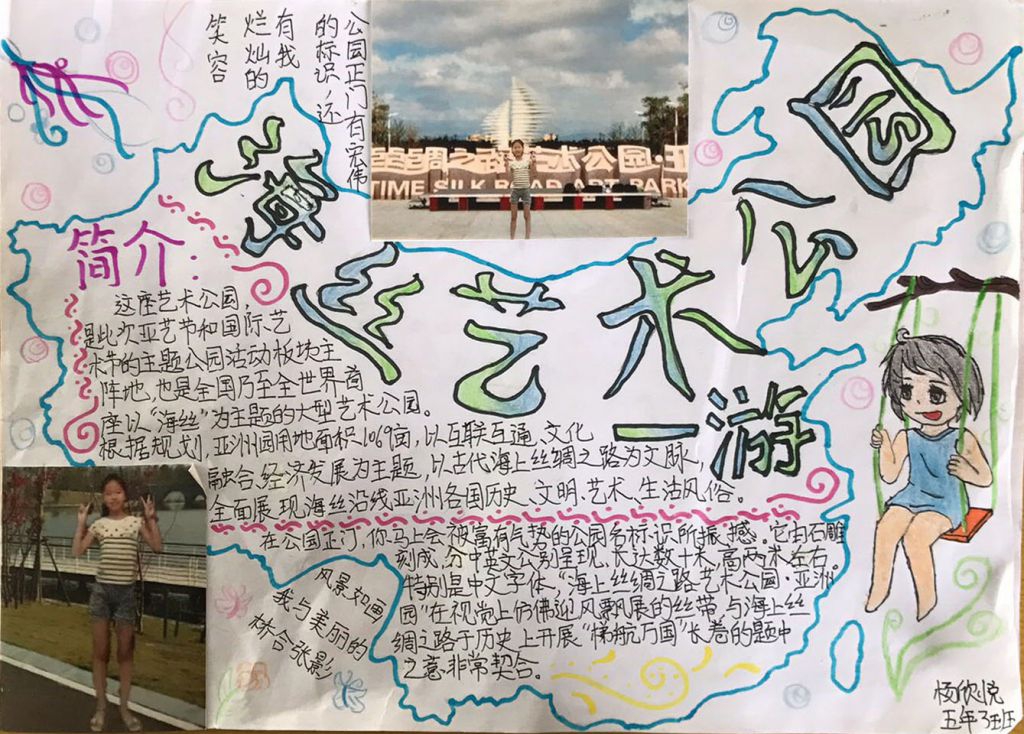 海丝艺术公园一游
公园正门有宏伟
的标识，还
有我
烂灿的
笑容
TIME SILK ROAD ART PARK
简介：
这座艺术公园，
是此次亚艺节和国际艺
术节的主题公园活动板块主
阵地，也是全国乃至全世界首
座以“海丝”为主题的大型艺术公园。
根据规划，亚洲园用地面积1069亩，以互联互通、文化
融合、经济发展为主题，以古代海上丝绸之路为文脉，
全面展现海丝沿线亚洲各国历史、文明、艺术、生活风俗。
在公园正汀，你马上会被富有气势的公园名标识所振撼。它由石雕
刻成，分中英文公别呈现，长达数十米，高两米左右。
特别是中文字体，“海上丝绸之路艺术公园·亚洲
园”在视觉上仿佛迎风飘展的丝带，与海上丝
绸之路于历史上开展“梯航万国”长卷的题中
之意非常契合。
风景如画
我与美丽的
林合张影
杨欣悦
五年3班